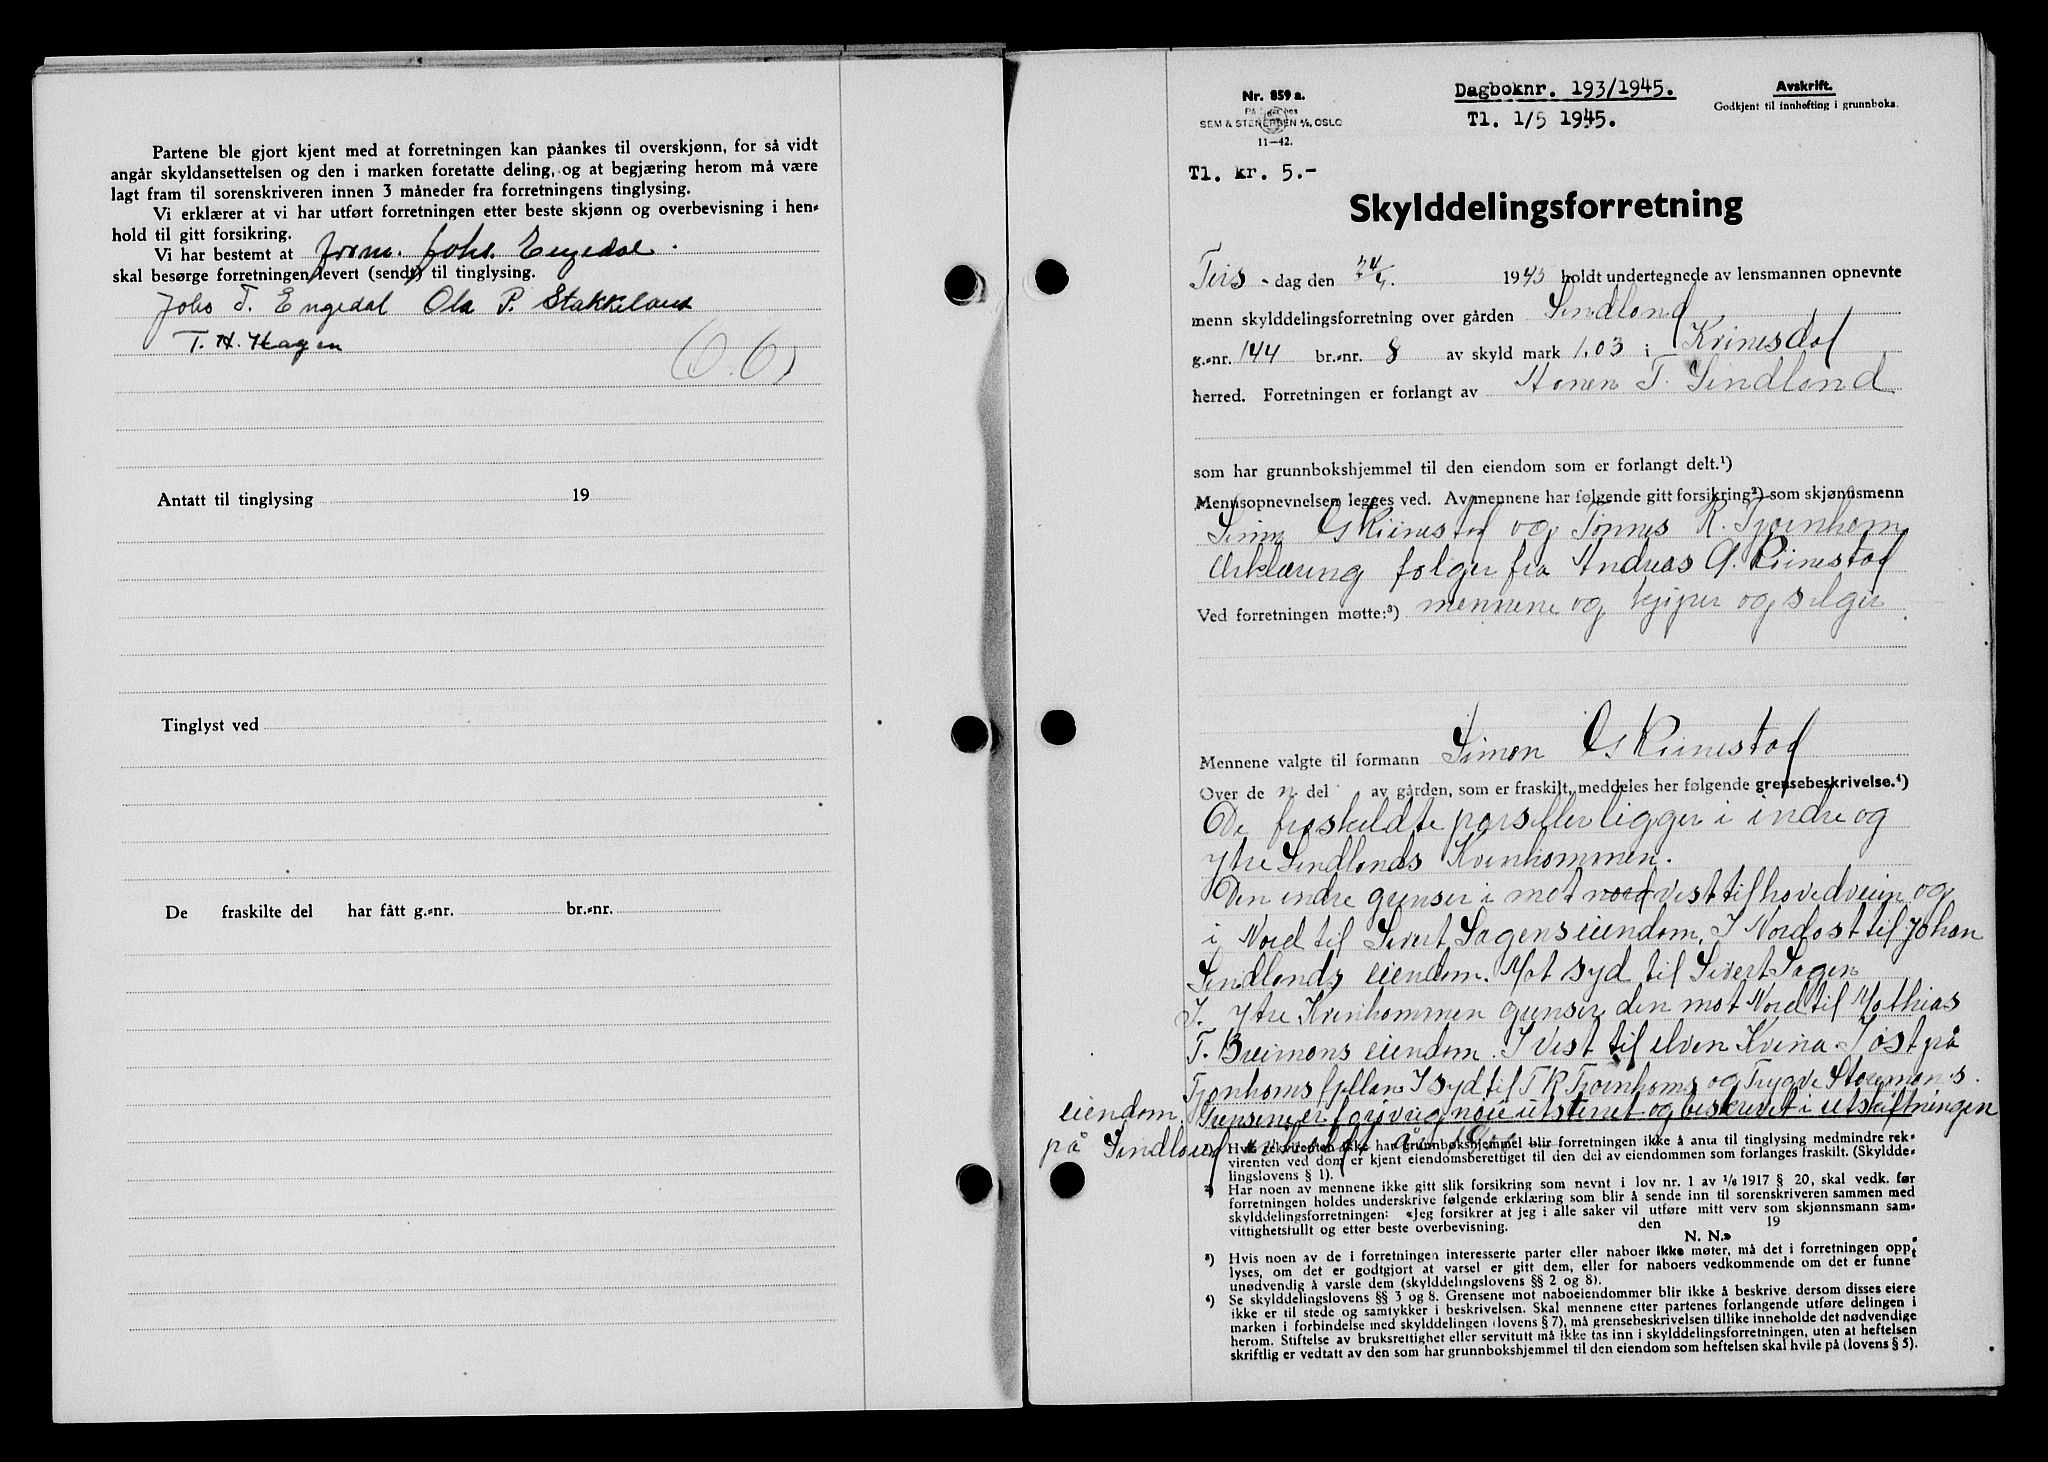 Partene ble gjort kjent med at forretningen kan påankes til overskjønn, for så vidt
angår skyldansettelsen og den i marken foretatte deling, og at begjæring herom må være
lagt fram til sorenskriveren innen 3 måneder fra forretningens tinglysing.
Vi erklærer at vi har utført forretningen etter beste skjønn og overbevisning i hen-
hold til gitt forsikring.
Vi har bestemt at form. Johs. Engedal.
skal besørge forretningen levert (sendt) til tinglysing.
Johs T. Engedal Ola P. Stakkeland
T. H. Hagen
Antatt til tinglysing 19
Tinglyst ved
De fraskilte del har fått g.-nr. br.-nr.
Nr. 859 a.
SEM & STENERSEN A/S, OSLO
11—42.
Dagboknr. 193/1945.
Tl. 1/5 1945.
Avskrift.
Godkjent til innhefting i grunnboka.
Tl. kr. 5.-
Skylddelingsforretning
Tirs - dag den 24/ 1945 holdt undertegnede av lensmannen opnevnte
menn skylddelingsforretning over gården Sindland
g.-nr. 144 br.-nr. 8 av skyld mark 1,03 i Kvinesdal
herred. Forretningen er forlangt av Hanen T. Sindland
som har grunnbokshjemmel til den eiendom som er forlangt delt.¹)
Mennsopnevnelsen legges ved. Av mennene har følgende gitt forsikring²) som skjønnsmenn
Simon G Kvinestad og Tønnes K. Tjornhom
Erklæring følger fra Andreas A. Kvinestad
Ved forretningen møtte:³) mennene og kjøper og selger
Mennene valgte til formann Simon G Kvinestad
Over de n del av gården, som er fraskilt, meddeles her følgende grensebeskrivelse.⁴)
De fraskildte parseller ligger i indre og
ytre Sindlands Kvinhommen.
Den indre grenser i mot nord vest til hovedveien og
i Nord til Sivert Sagens eiendom. I Nordost til Johan
Sindlands eiendom. Mot syd til Sivert Sagen
I. ytre Kvinhommen grenser den mot Nord til Mathias
T. Breimons eiendom. I vest til elven Kvina. I ost på
Tjonhoms fjellan I syd til T K Tjornhoms og Trygve Storemons
eiendom. Grensene er forøvrig nøie utstenet og beskrevet i utskiftningen
på Sindland
¹) Hvis rekvirenten ikke har grunnbokshjemmel blir forretningen ikke å anta til tinglysing medmindre rek-
virenten ved dom er kjent eiendomsberettiget til den del av eiendommen som forlanges fraskilt. (Skyldde-
lingslovens § 1).
²) Har noen av mennene ikke gitt slik forsikring som nevnt i lov nr. 1 av 1/6 1917 § 20, skal vedk. før
forretningen holdes underskrive følgende erklæring som blir å sende inn til sorenskriveren sammen med
skylddelingsforretningen: «Jeg forsikrer at jeg i alle saker vil utføre mitt verv som skjønnsmann sam-
vittighetsfullt og etter beste overbevisning. den 19
N. N.»
³) Hvis noen av de i forretningen interesserte parter eller naboer ikke møter, må det i forretningen opp-
lyses, om det er godtgjort at varsel er gitt dem, eller for naboers vedkommende om det er funnet
unødvendig å varsle dem (skylddelingslovens §§ 2 og 8).
⁴) Se skylddelingslovens §§ 3 og 8. Grensene mot naboeiendommer blir ikke å beskrive, dersom disses eiere
ikke er til stede og samtykker i beskrivelsen. Skal mennene etter partenes forlangende utføre delingen i
marken i forbindelse med skylddelingen (lovens § 7), må grensebeskrivelsen tillike inneholde det nødvendige
herom. Stiftelse av bruksrettighet eller servitutt må ikke tas inn i skylddelingsforretningen, uten at heftelsen
skriftlig er vedtatt av den som har grunnbokshjemmel til den eiendom som heftelsen skal hvile på (lovens § 5).